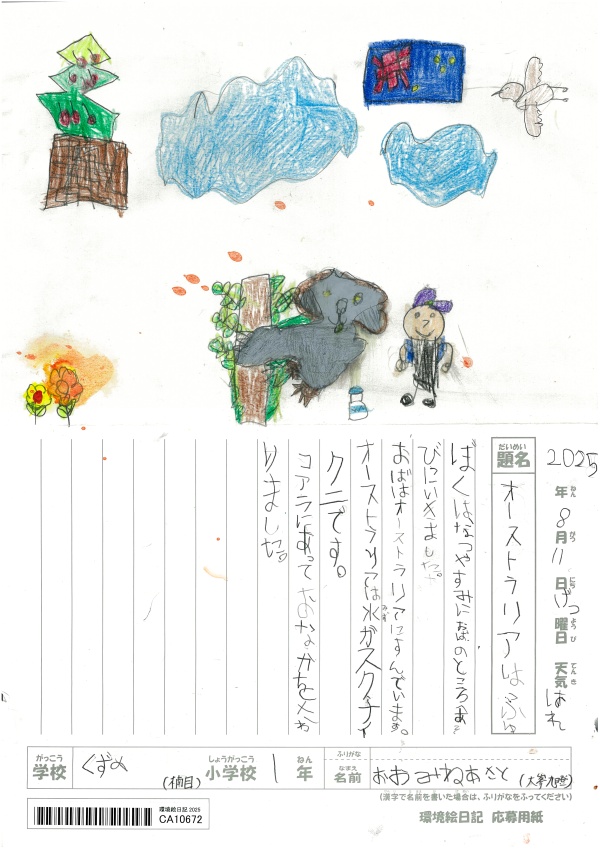 2025年ねん8月がつ11日にちげつ曜日ようび天気てんきはれ
だいめい
題名
オーストラリアはふゆ
ぼくはなつやすみにおばのところへあそ
びにいきました。
おばはオーストラリアにすんでいます。
オーストラリアは水みずガスクナイ
クニです。
コアラにあって
りました。
がっこう
学校
くずめ
(楠目)
しょうがっこう
小学校
1
ねん
年
ふりがな
なまえ
名前
おおみねあさと
(漢字で名前を書いた場合は、ふりがなをふってください)
環境絵日記 2025
CA10672
環境絵日記 応募用紙